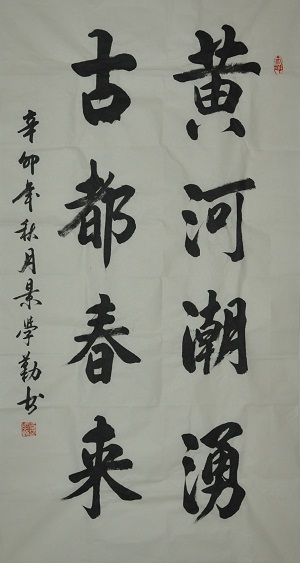 黄河潮湧
古都春来
辛卯年秋月景學勤书